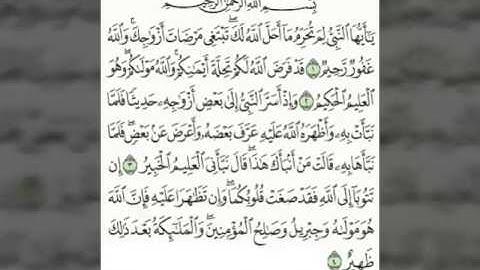 بِسْمِ اللَّهِ الرَّحْمَٰنِ الرَّحِيمِ
يَٰٓأَيُّهَا ٱلنَّبِىُّ لِمَ تُحَرِّمُ مَآ أَحَلَّ ٱللَّهُ لَكَ ۖ تَبْتَغِى مَرْضَاتَ أَزْوَٰجِكَ ۚ وَٱللَّهُ
غَفُورٌ رَّحِيمٌ ١ قَدْ فَرَضَ ٱللَّهُ لَكُمْ تَحِلَّةَ أَيْمَٰنِكُمْ ۚ وَٱللَّهُ مَوْلَىٰكُمْ ۖ وَهُوَ
ٱلْعَلِيمُ ٱلْحَكِيمُ ٢ وَإِذْ أَسَرَّ ٱلنَّبِىُّ إِلَىٰ بَعْضِ أَزْوَٰجِهِۦ حَدِيثًا فَلَمَّا
نَبَّأَتْ بِهِۦ وَأَظْهَرَهُ ٱللَّهُ عَلَيْهِ عَرَّفَ بَعْضَهُۥ وَأَعْرَضَ عَنۢ بَعْضٍ ۖ فَلَمَّا
نَبَّأَهَا بِهِۦ قَالَتْ مَنْ أَنۢبَأَكَ هَٰذَا ۖ قَالَ نَبَّأَنِىَ ٱلْعَلِيمُ ٱلْخَبِيرُ ٣ إِن
تَتُوبَآ إِلَى ٱللَّهِ فَقَدْ صَغَتْ قُلُوبُكُمَا ۖ وَإِن تَظَٰهَرَا عَلَيْهِ فَإِنَّ ٱللَّهَ
هُوَ مَوْلَىٰهُ وَجِبْرِيلُ وَصَٰلِحُ ٱلْمُؤْمِنِينَ ۖ وَٱلْمَلَٰٓئِكَةُ بَعْدَ ذَٰلِكَ
ظَهِيرٌ ٤